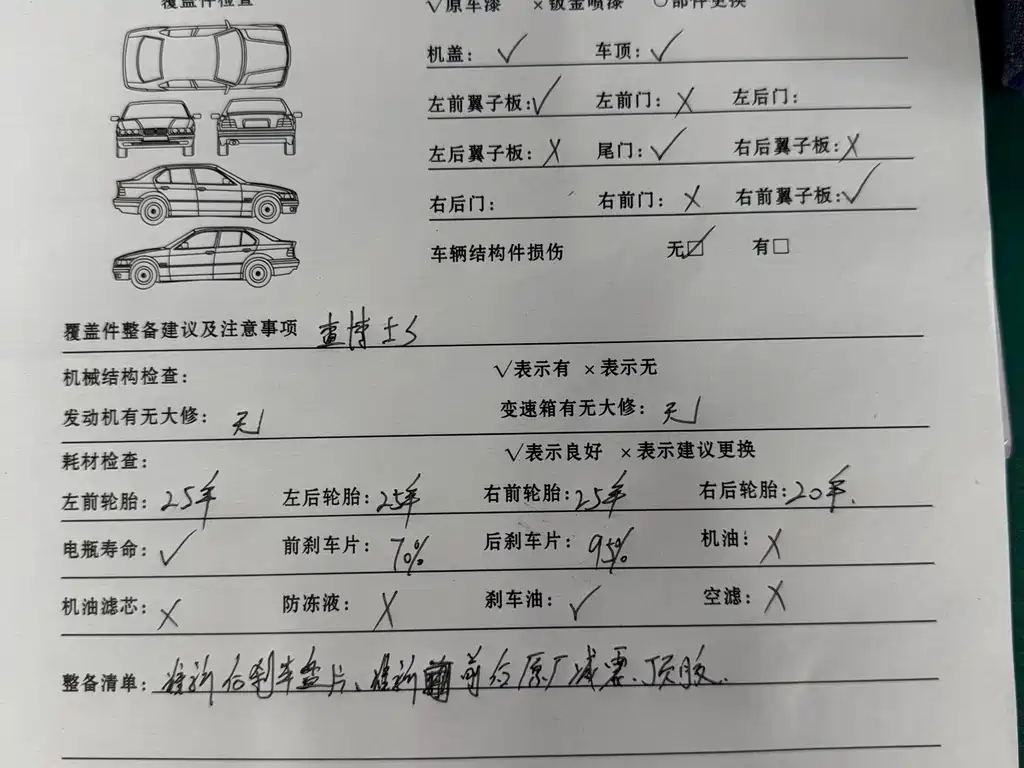 覆盖件检查 √原车漆 ×钣金喷漆 ○部件更换
机盖：√ 车顶：√
左前翼子板：√ 左前门：× 左后门：
左后翼子板：× 尾门：√ 右后翼子板：×
右后门： 右前门：× 右前翼子板：√
车辆结构件损伤 无☑ 有□
覆盖件整备建议及注意事项 查博士
机械结构检查： √表示有 ×表示无
发动机有无大修：无 变速箱有无大修：无
耗材检查： √表示良好 ×表示建议更换
左前轮胎：25年 左后轮胎：25年 右前轮胎：25年 右后轮胎：20年.
电瓶寿命：√ 前刹车片：70% 后刹车片：95% 机油：×
机油滤芯：× 防冻液：× 刹车油：√ 空滤：×
整备清单：后刹车盘片、前后原厂减震、顶胶.